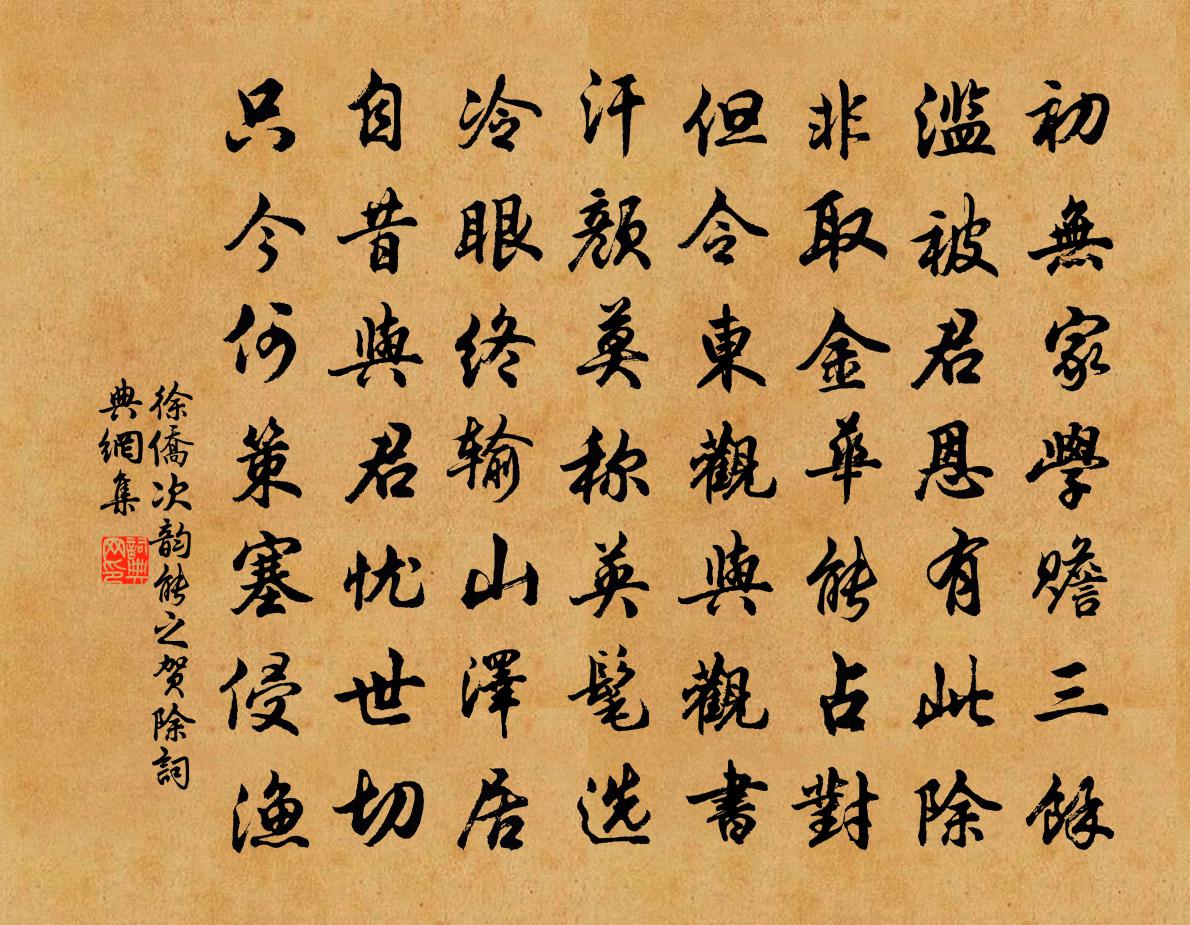 初無家學贍三餘
濫被君恩有此除
非取金華能占對
但令東觀與觀書
汗顏莫称英髦选
冷眼终输山澤居
自昔與君忧世切
只今何策塞侵漁
徐僑次韵能之贺除
詞典網集
詞典网印